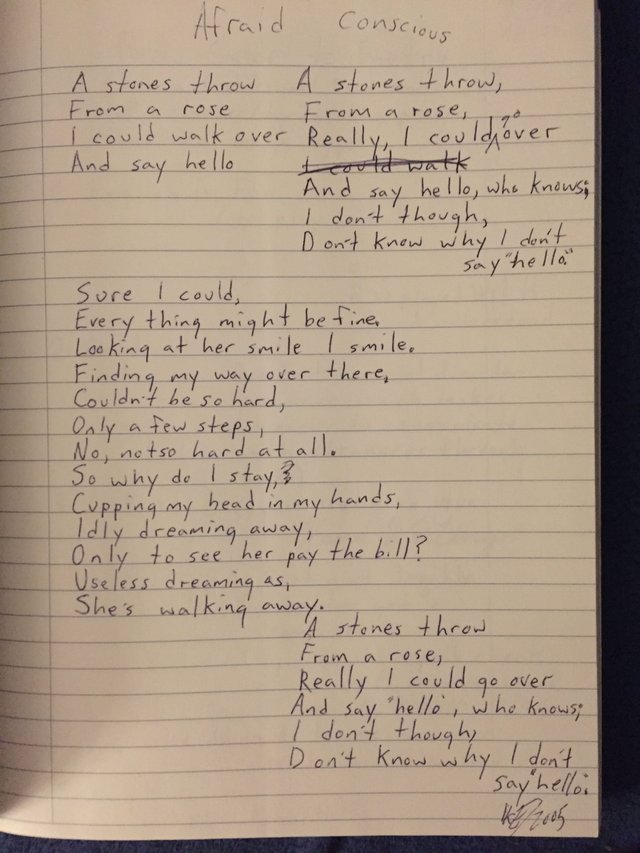 Afraid Conscious
A stones throw
From a rose
I could walk over
And say hello
A stones throw,
From a rose,
Really, I could go over
I could walk
And say hello, who knows;
I don't though,
Don't know why I don't
say "hello."
Sure I could,
Every thing might be fine.
Looking at her smile I smile.
Finding my way over there,
Couldn't be so hard,
Only a few steps,
No, not so hard at all.
So why do I stay,
Cupping my head in my hands,
Idly dreaming away,
Only to see her pay the bill?
Useless dreaming as,
She's walking away.
A stones throw
From a rose,
Really I could go over
And say "hello", who knows;
I don't though,
Don't know why I don't
say "hello."
2005